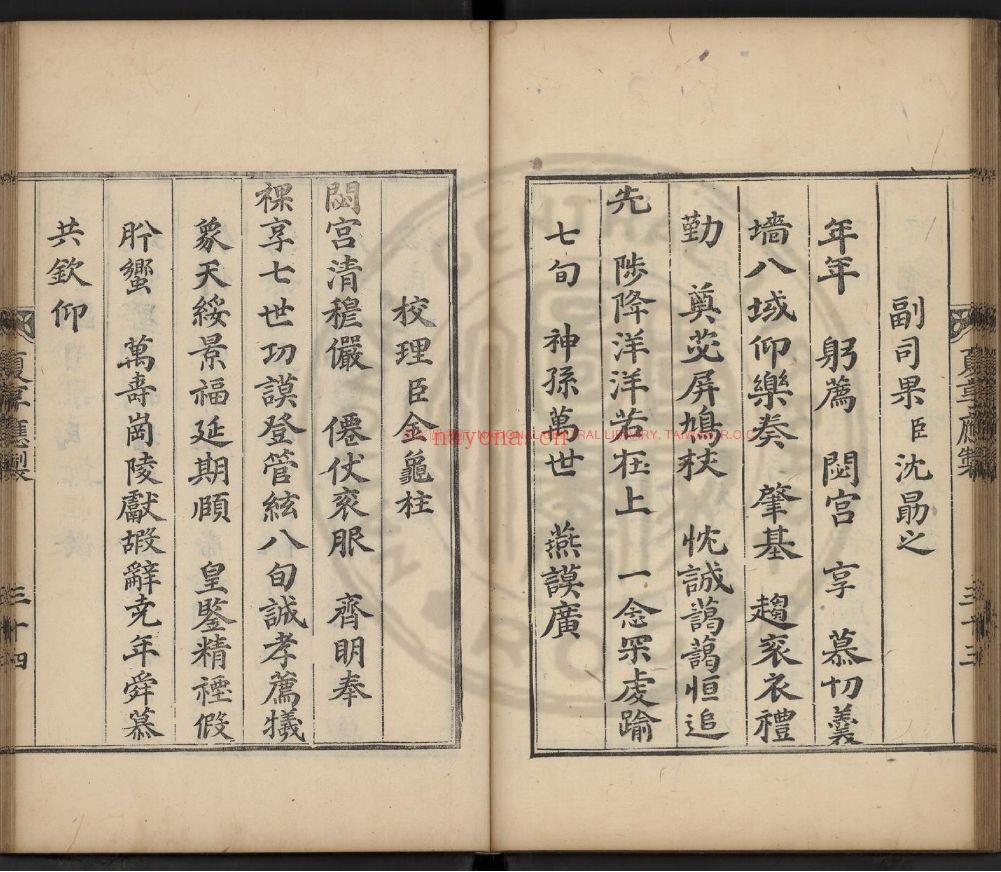 夏享應製
三十三
副司果臣沈勗之
年年 躬薦 閟宮 享 慕切羹
墻八域仰樂奏 肇基 趨衮衣禮
勤 奠苾屏鳩杖 忱誠藹藹恒追
先 陟降洋洋若在上 一念罙虔踰
七旬 神孫萬世 燕謨廣
校理臣金龜柱
閟宮清穆儼 僊仗衮服 齊明奉
祼享七世功謨登管絃八旬誠孝薦犧
象天綏景福延期頤 皇鑒精禋假
肹蠁 萬壽崗陵獻嘏辭堯年舜慕
共欽仰
夏享應製
三十四
nayona.cn
NATIONAL CENTRAL LIBRARY, TAIWAN, R.O.C